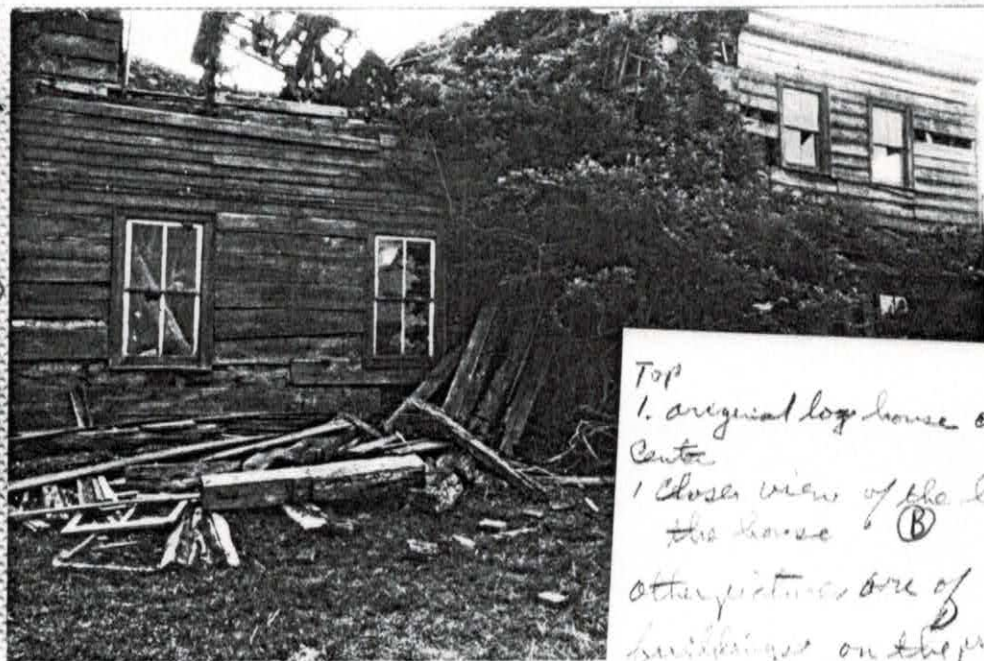 Top
1. original log house
Center
1 Closer view of the
the house Ⓑ
other pictures are of
buildings on the